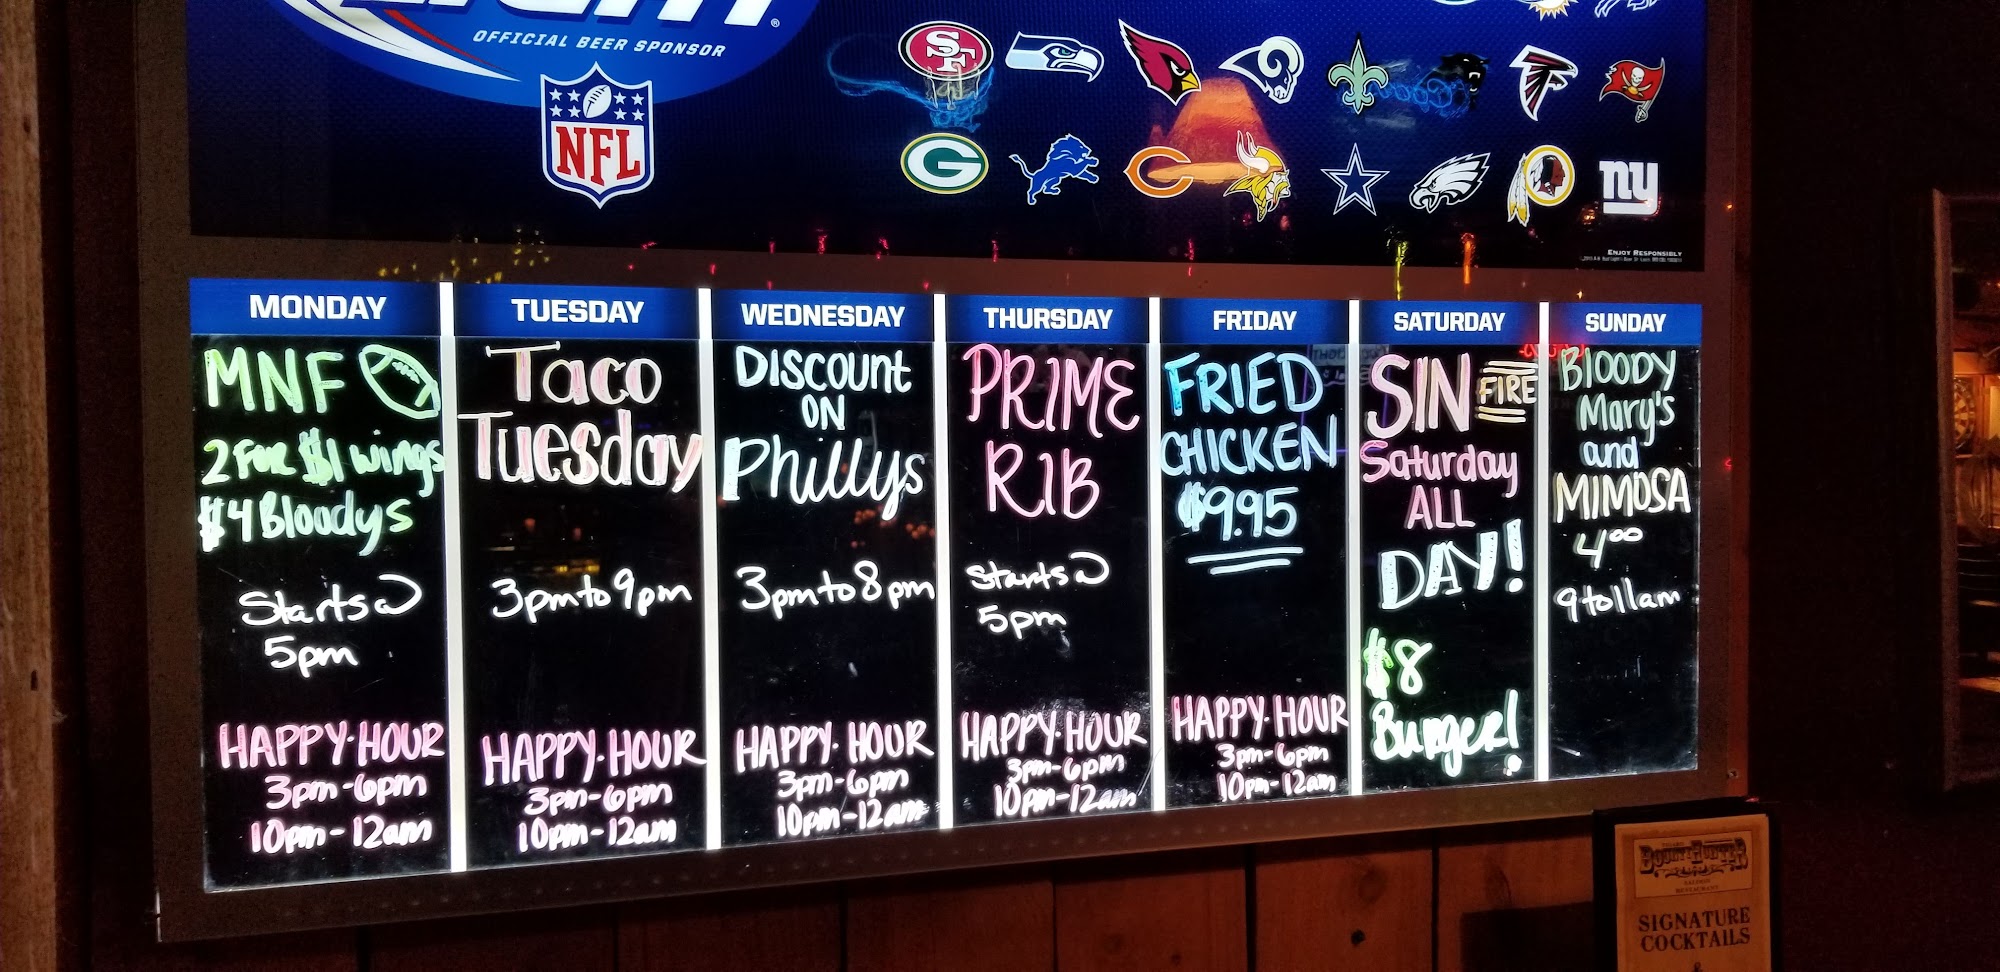 LIGHT
OFFICIAL BEER SPONSOR
NFL
SF
G
C
ny
ENJOY RESPONSIBLY
MONDAY
MNF
2 FOR $1 wings
$4 Bloodys
Starts @
5pm
HAPPY·HOUR
3pm-6pm
10pm-12am
TUESDAY
Taco
Tuesday
3pm to 9pm
HAPPY·HOUR
3pm-6pm
10pm-12am
WEDNESDAY
DISCOUNT
ON
Phillys
3pm to 8pm
HAPPY·HOUR
3pm-6pm
10pm-12am
THURSDAY
PRIME
RIB
Starts @
5pm
HAPPY·HOUR
3pm-6pm
10pm-12am
FRIDAY
FRIED
CHICKEN
$9.95
HAPPY·HOUR
3pm-6pm
10pm-12am
SATURDAY
SIN FIRE
Saturday
ALL
DAY!
$8
Burger!
SUNDAY
BLOODY
Mary's
and
MIMOSA
4.00
9 to 11am
BOUNTY HUNTER
SALOON
RESTAURANT
SIGNATURE
COCKTAILS
&